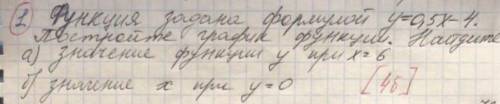 1 Функция задана формулой y=0,5x-4.
Постройте график функции. Найдите
а) значение функции y при x=6
б) значение x при y=0 [4б]